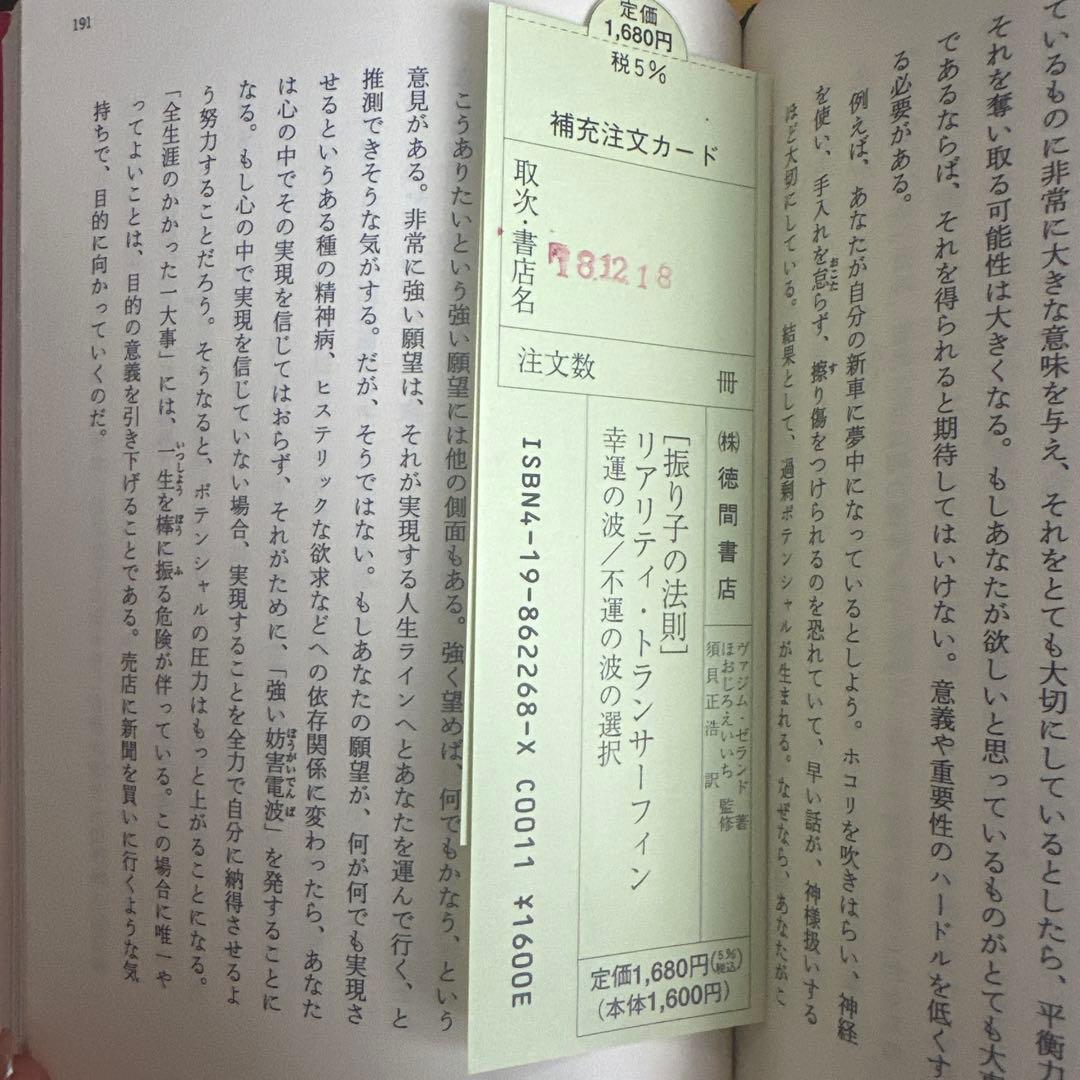 ているものに非常に大きな意味を与え、それをとても大切にしているとしたら、平衡力
それを奪い取る可能性は大きくなる。もしあなたが欲しいと思っているものがとても大事
であるならば、それを得られると期待してはいけない。意義や重要性のハードルを低くす
る必要がある。
例えば、あなたが自分の新車に夢中になっているとしよう。ホコリを吹きはらい、神経
を使い、手入れを怠らず、擦り傷をつけられるのを恐れていて、早い話が、神様扱いする
おこた
す
ほど大切にしている。結果として、過剰ポテンシャルが生まれる。なぜなら、あなたがこ
定価
1,680円
税5%
補充注文カード
取次・書店名
18.12.18
注文数
冊
㈱徳間書店
ヴァジム・ゼランド 著
ほおじろえいいち 監修
須貝正浩 訳
[振り子の法則]
リアリティ・トランサーフィン
幸運の波/不運の波の選択
ISBN4-19-862268-X C0011 ¥1600E
定価1,680円(5%税込)
(本体1,600円)
191
こうありたいという強い願望には他の側面もある。強く望めば、何でもかなう、という
意見がある。非常に強い願望は、それが実現する人生ラインへとあなたを運んで行く、と
推測できそうな気がする。だが、そうではない。もしあなたの願望が、何が何でも実現さ
せるというある種の精神病、ヒステリックな欲求などへの依存関係に変わったら、あなた
は心の中でその実現を信じてはおらず、それがために、「強い妨害電波」を発することに
ぼうがいでんぱ
なる。もし心の中で実現を信じていない場合、実現することを全力で自分に納得させるよ
う努力することだろう。そうなると、ポテンシャルの圧力はもっと上がることになる。
「全生涯のかかった一大事」には、一生を棒に振る危険が伴っている。この場合に唯一や
いっしょう
ぼう
ふ
ってよいことは、目的の意義を引き下げることである。売店に新聞を買いに行くような気
持ちで、目的に向かっていくのだ。